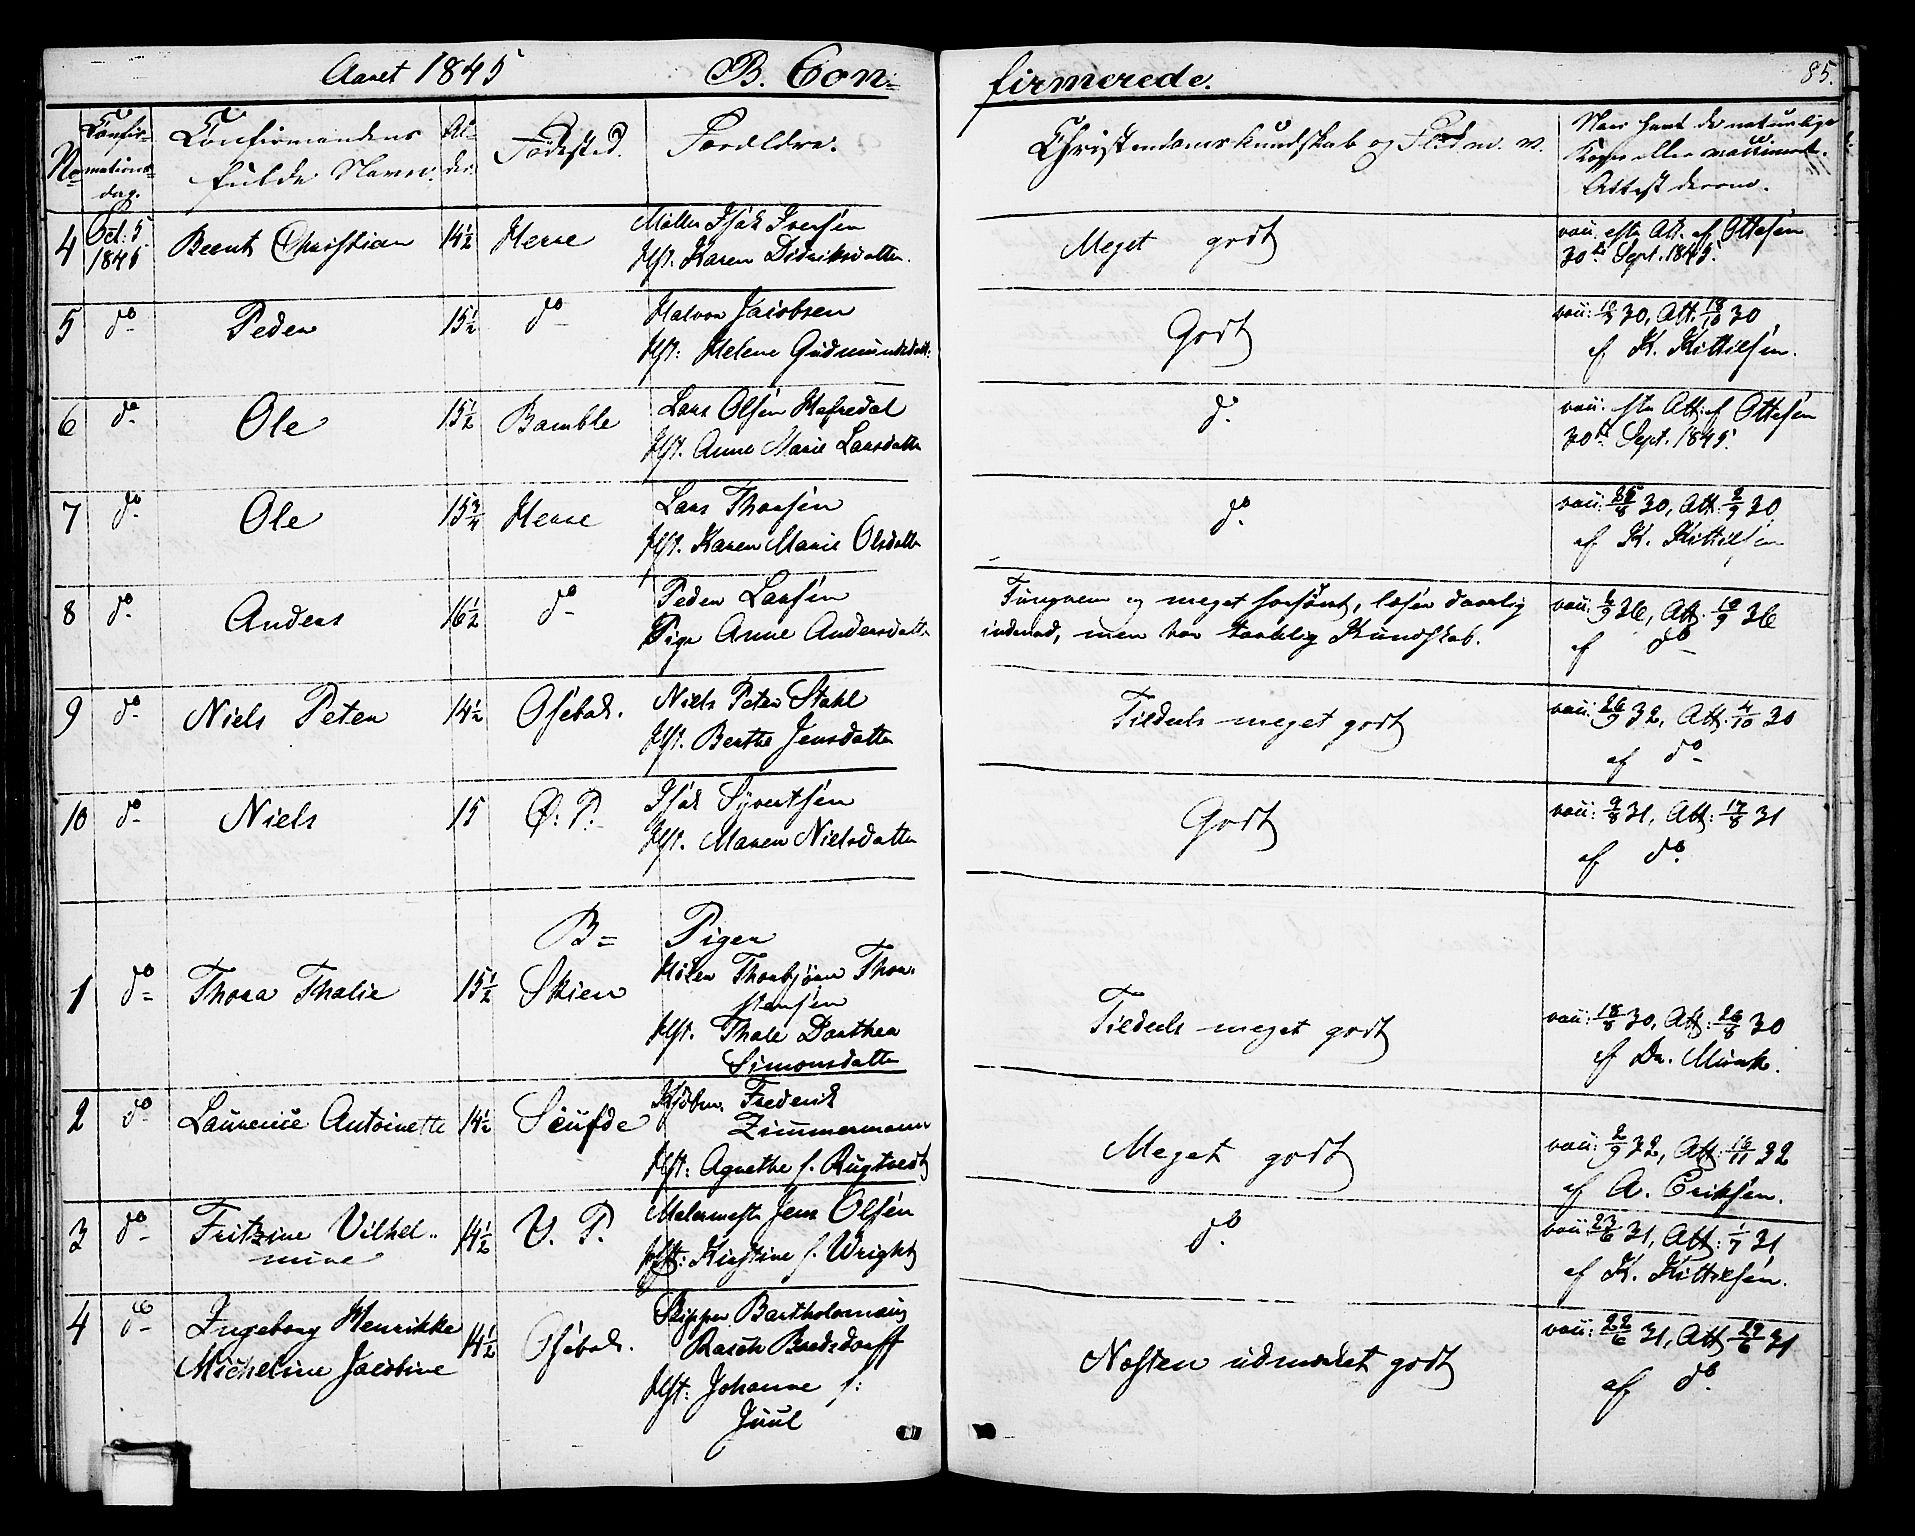 Aaret 1845 B. Con=
firmerede. 85.
No Confir-
mations-
dag. Confirmandens
fulde Navn. Al-
der. Fødested. Forældre.
Christendomskundskab og Flid m. v.
Naar havt de naturlige
Kopper eller vaccineret.
Attest derom.
4 Oct: 5 1845 Beent Christian 14½ Herre Møller Isak Iversen
Hst. Karen Didriksdatter.
Meget godt vacc: efter Att. af Ottesen
30te Sept. 1845.
5 do Peder 15½ do Halvor Jacobsen
Hst: Helene Gudmundsdatt:
Godt Att. 18/10 30
af K. Kittilsen.
6 do Ole 15½ Bamble Lars Olsen Hafredal
Hst. Anne Marie Larsdatter
do. vacc: efter Att: af Ottesen
30te Sept. 1845.
7 do Ole 15¾ Herre Lars Thorsen
Hst. Karen Marie Olsdatter
do. vacc: 25/8 30, Att: 2/9 30
af K. Kittilsen
8 do. Anders 16½ do Peder Larsen
Pige Anne Andersdatter
Tungnem og meget forsømt, læser daarlig
indenad, men har taalelig Kundskab.
vacc: 6/9 36, Att: 10/9 36
af do
9 do Niels Peter 14½ Osebak. Niels Peter Stahl
Hst. Berthe Jensdatter
Tildeels meget godt vacc: 26/9 32, Att. 4/10 30
af do
10 do Niels 15 Ø: P. Isak Syvertsen
Hst. Maren Nielsdatter
Godt vacc: 9/8 31, Att: 17/8 31
af do.
B= Piger
1 do Thora Thalie 15½ Skien Thorbjørn Thor-
stensen
Hst. Thale Dorthea
Simonsdatter
Tildeels meget godt vacc: 18/8 30, Att: 26/8 30
af Dr. Munk.
2 do Laurenine Antoinette 14½ Seufde Kjøbm. Frederik
Zimmermann
Hst: Agnethe f. Rugtvedt
Meget godt vacc: 2/9 32, Att: 16/11 32
af A. Eriksen.
3 do Fritzine Vilhel-
mine 14½ V. P. Malermester Jens Olsen
Hst: Kirstine f. Wright
do. vacc: 23/6 31, Att: 1/7 31
af K. Kittilsen.
4 do Ingeborg Henrikke
Micheline Jacobine 14½ Osebak. Skipper Bartholomæus
Rasch Bredsdorff
Hst: Johanne f:
Juul
Næsten udmærket godt vacc: 22/6 31, Att: 29/6 31
af do.